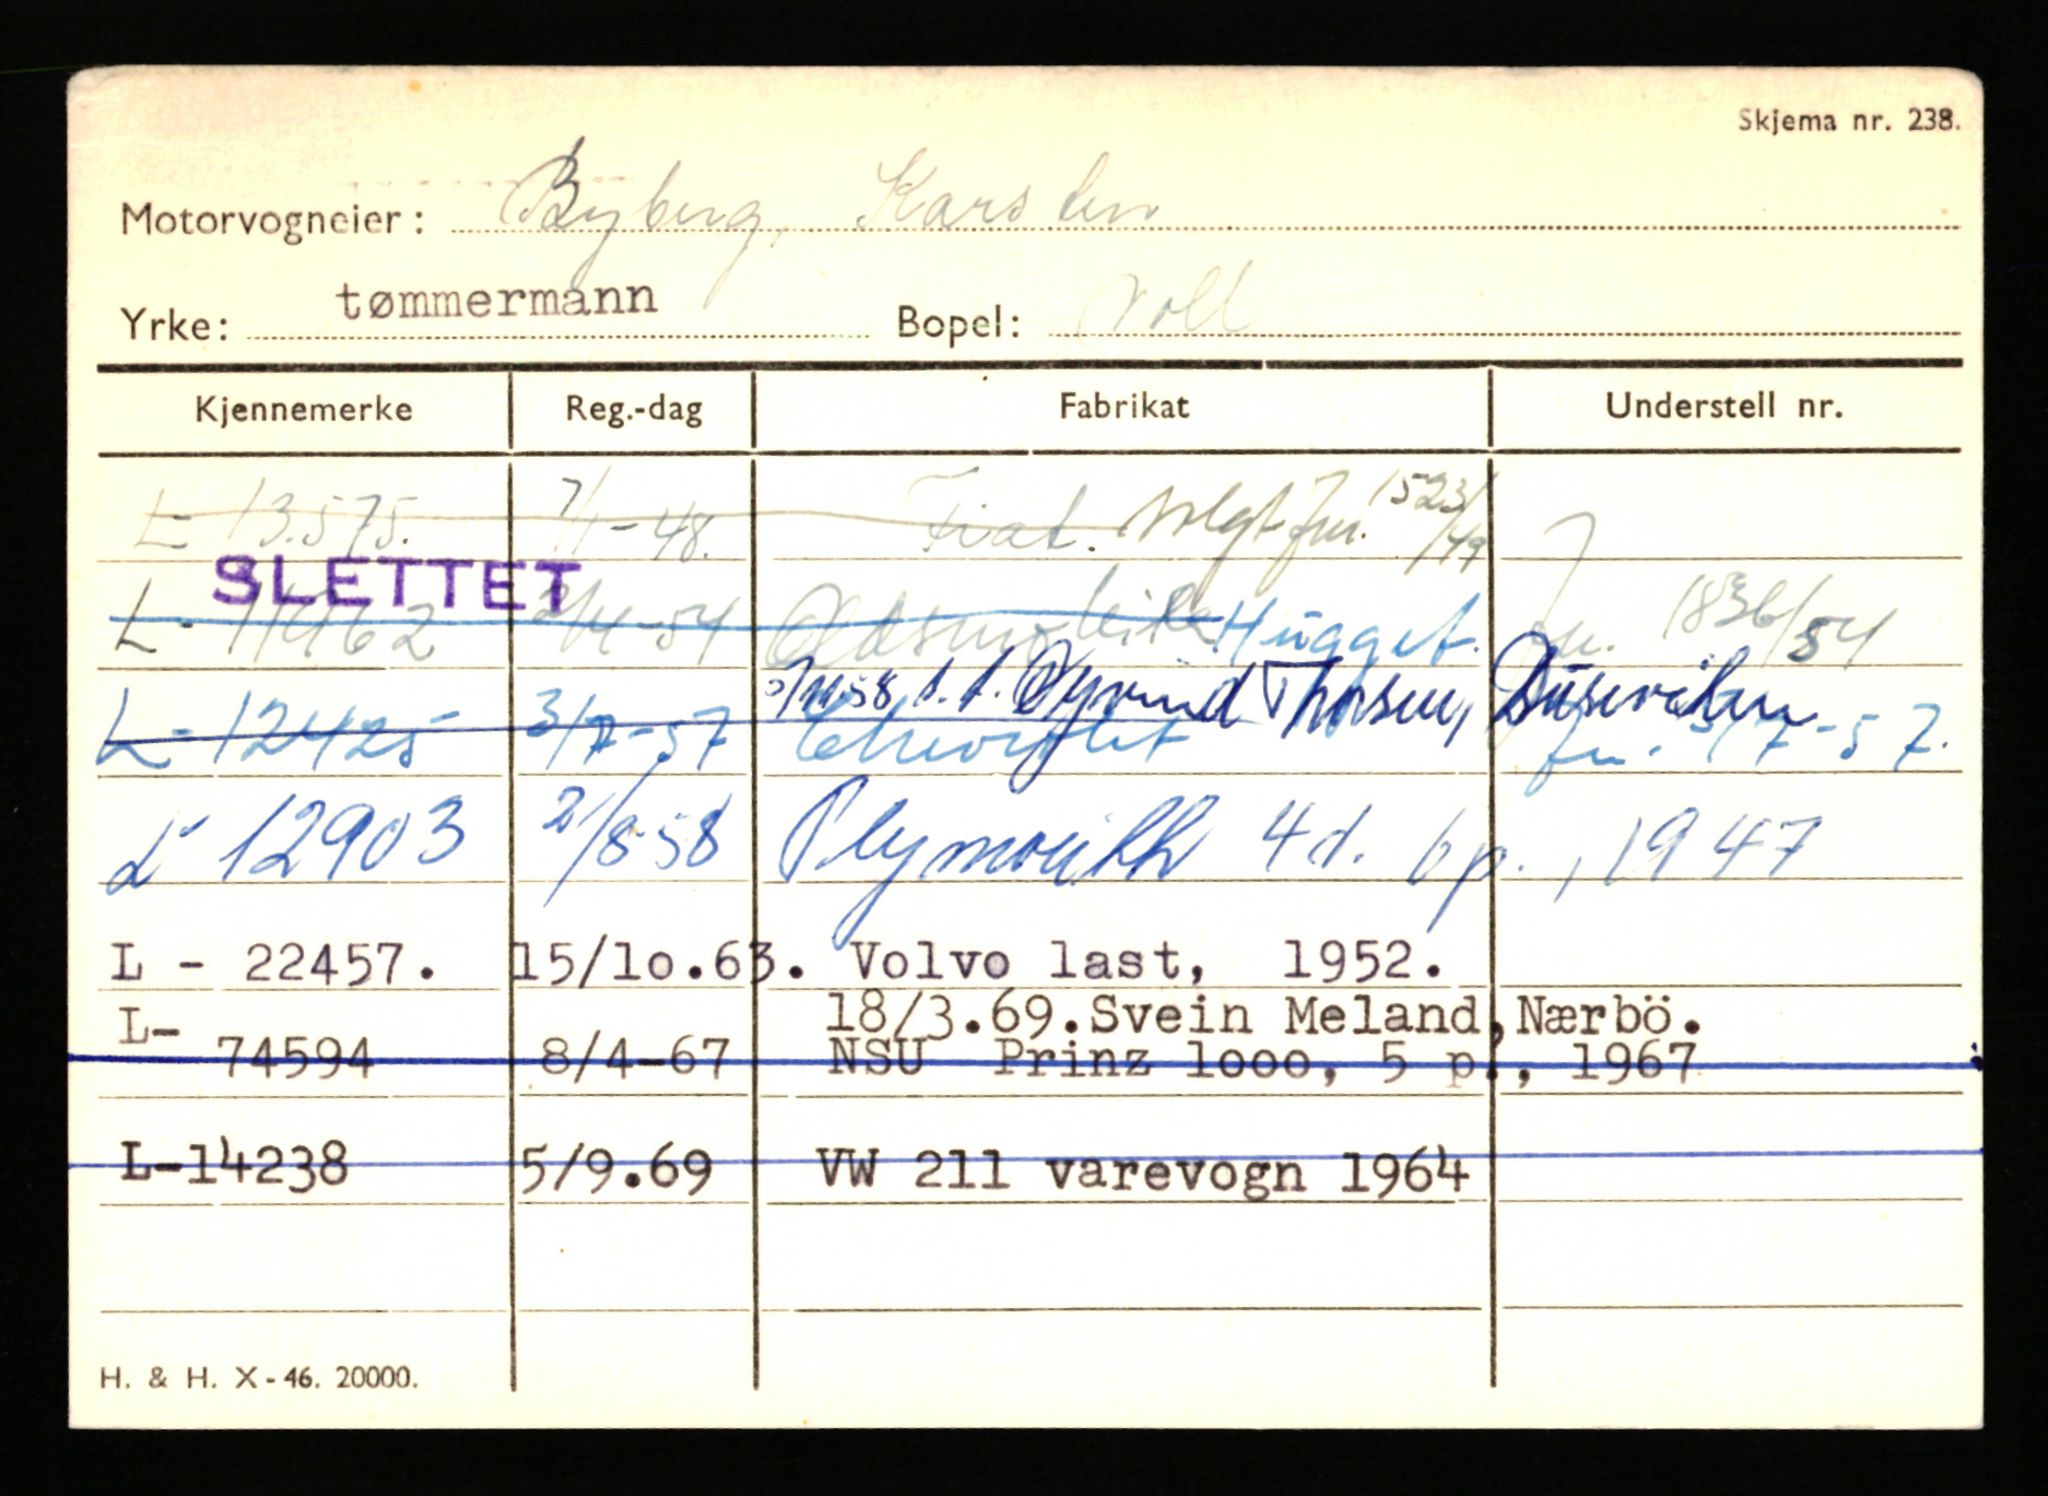 Skjema nr. 238.
Motorvogneier: Byberg, Karsten
Yrke: tømmermann Bopel: Voll
Kjennemerke Reg.-dag Fabrikat Understell nr.
L- 13.575. 7/1-48. Fiat. Solgt jnr. 1523/49
SLETTET
L- 11462 2/4-54 Oldsmobile Hugget. jnr. 1836/54
58 Øyvind Thorsen, Duseviken
L- 12425 3/7-57 Chevrolet jnr. 3/7-57.
L- 12903 2/8 58 Plymouth 4d. 6p., 1947
L - 22457. 15/1o.63. Volvo last, 1952.
18/3.69. Svein Meland, Nærbö.
L- 74594 8/4-67 NSU Prinz 1ooo, 5 p., 1967
L-14238 5/9.69 VW 211 varevogn 1964
H. & H. X - 46. 20000.